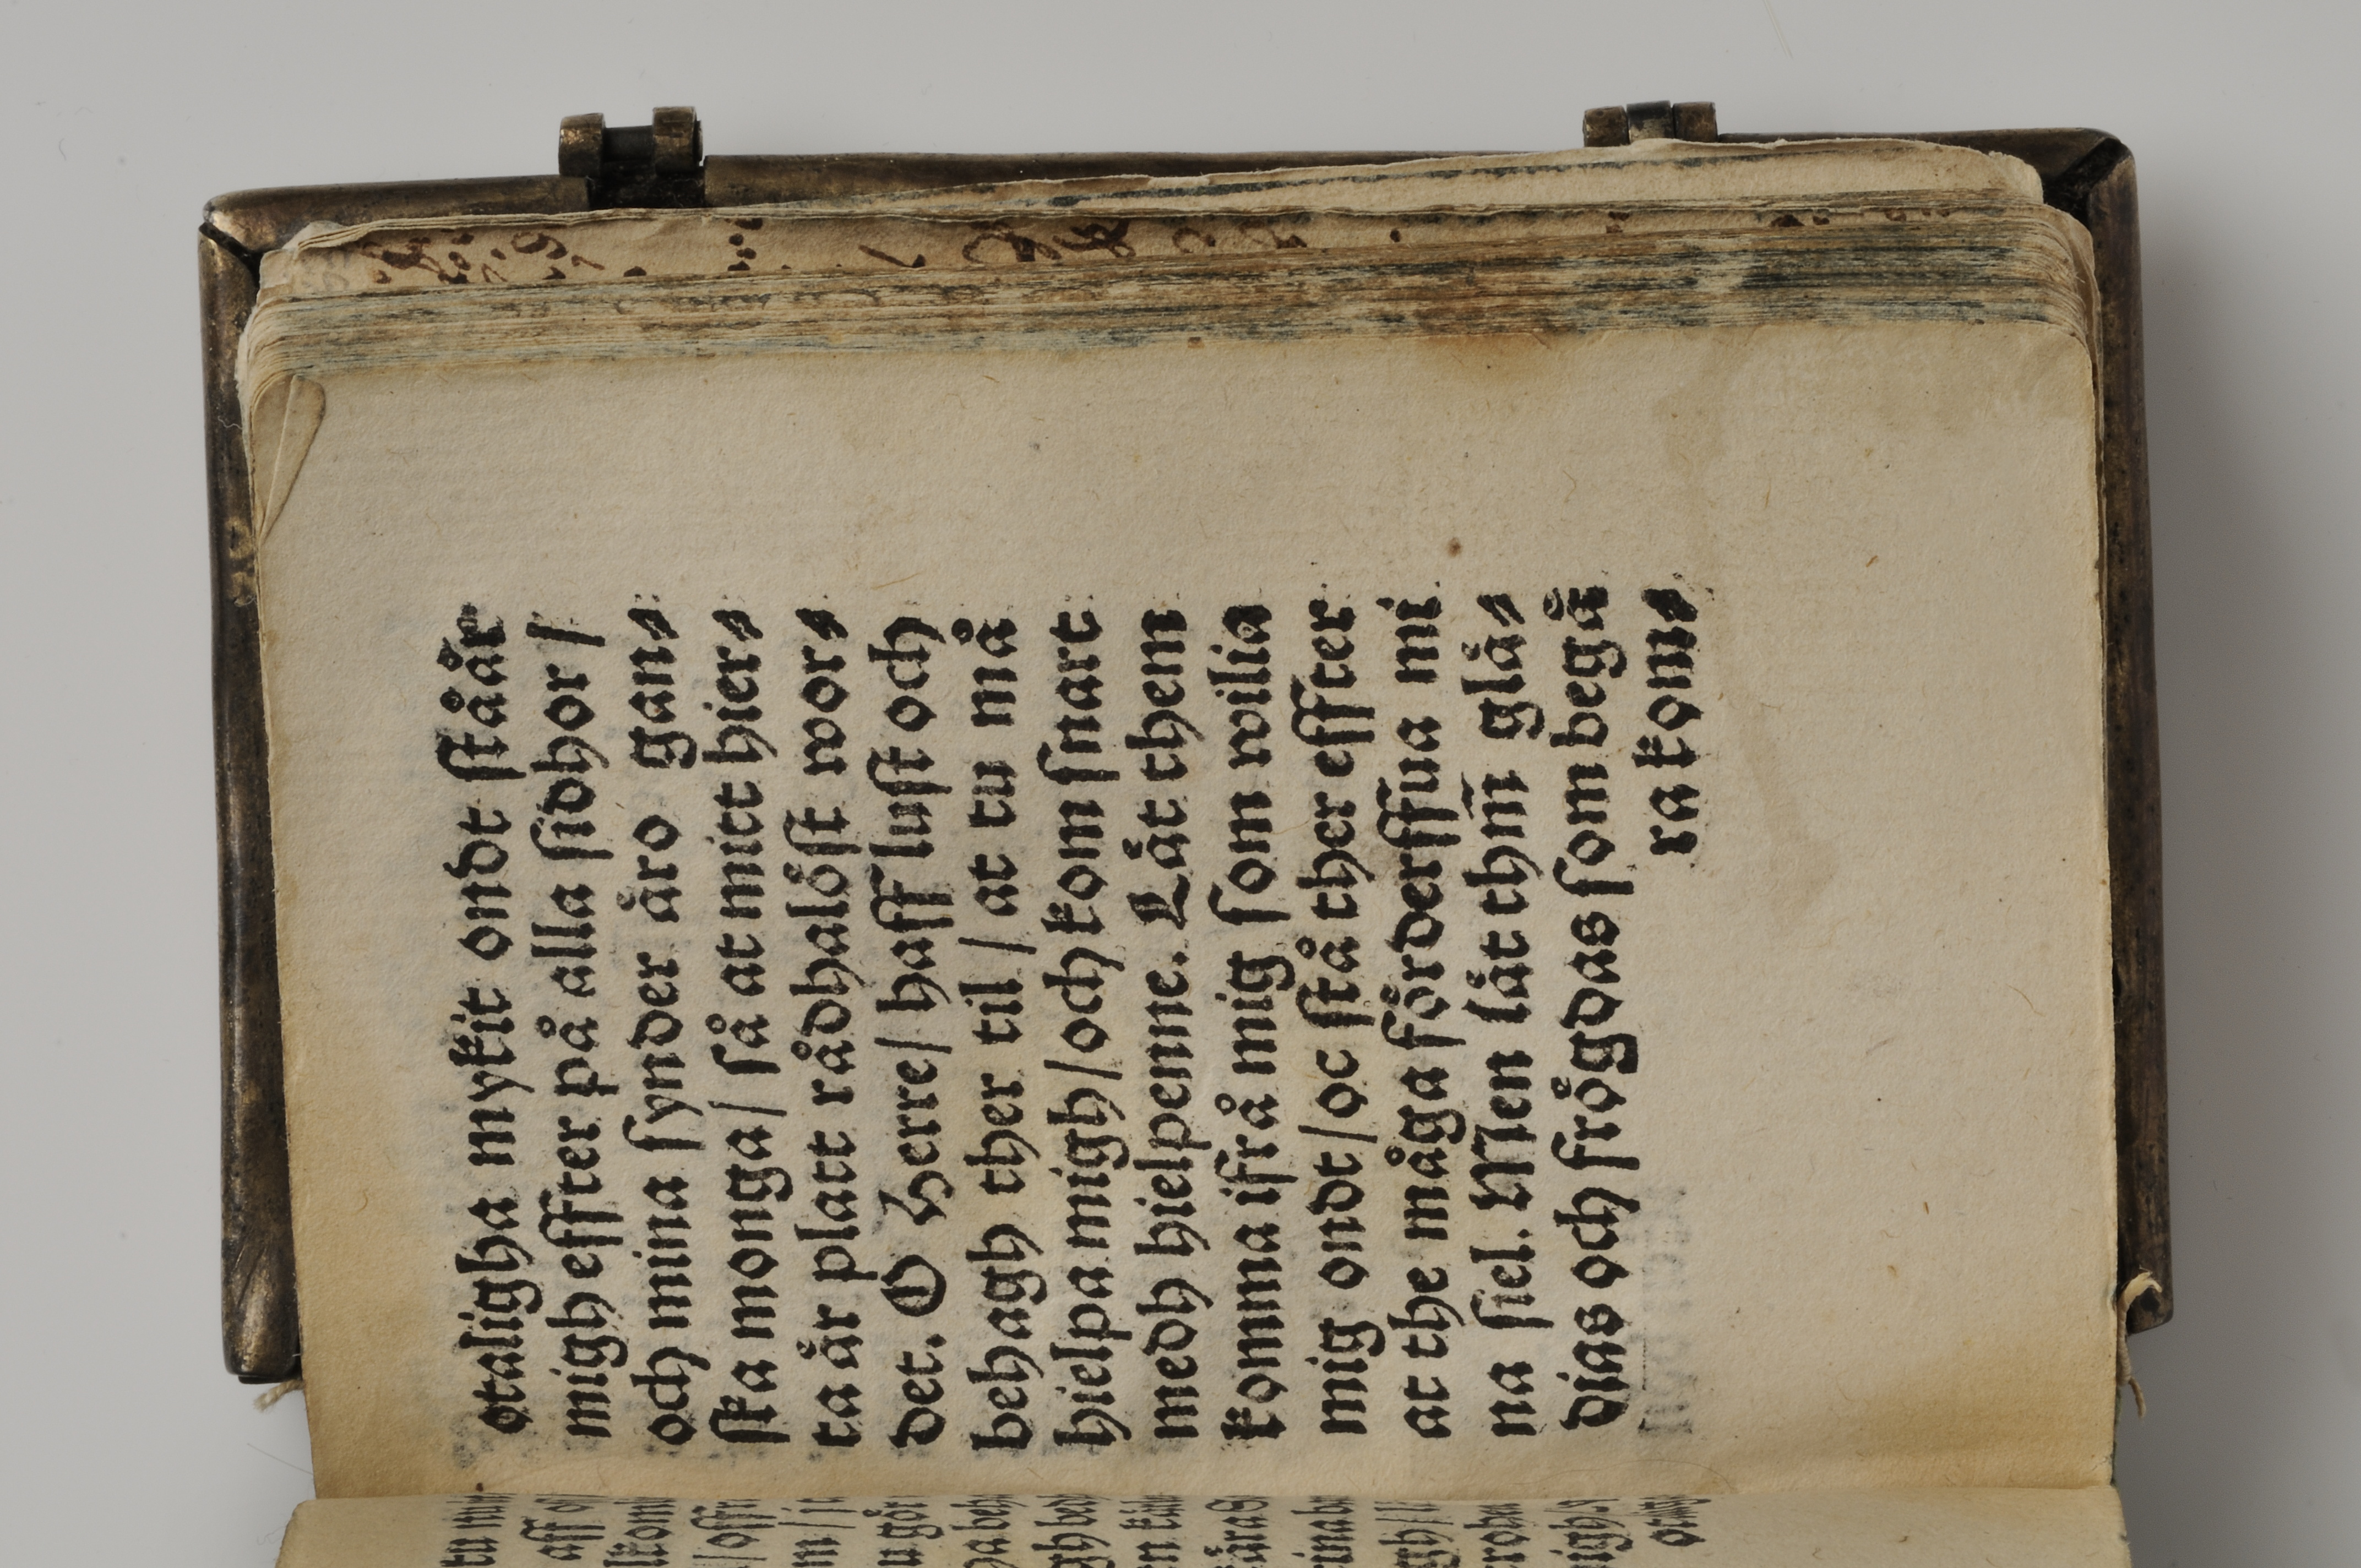 otaligha mykit ondt ståår
migh effter på alla sidhor /
och mina synder äro gan⸗
ska monga / så at mitt hier⸗
ta är platt rådhalöst wor⸗
det. O Herre / haff lust och
behagh ther til / at tu må
hielpa migh / och kom snart
medh hielpenne. Låt them
komma ifrå mig som wilia
mig ondt / oc stå ther effter
at the måga förderffua mi
na siel. Men låt thm̄ glä⸗
dias och frögdas som begä
ra kom⸗